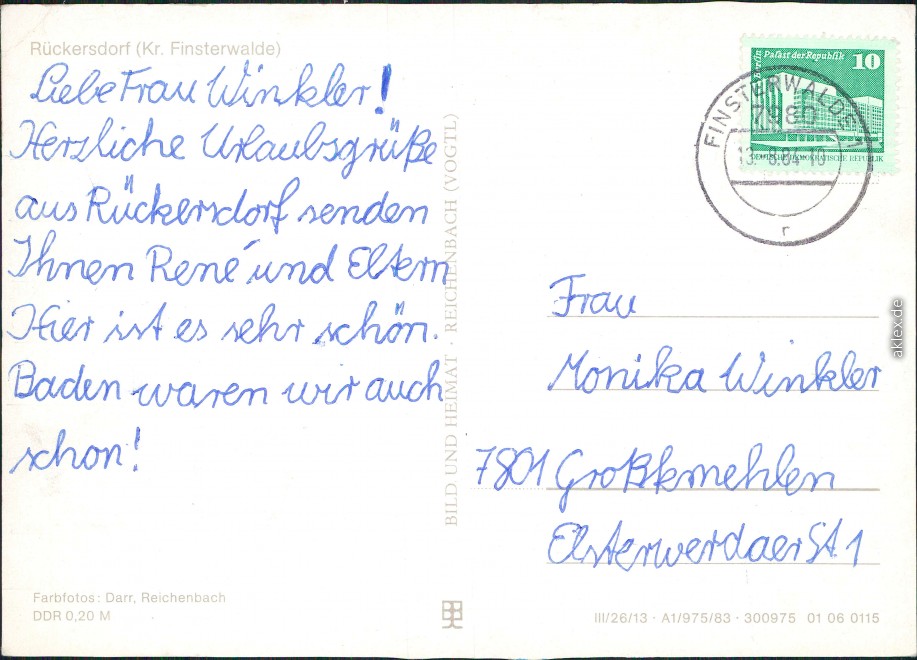 Rückersdorf (Kr. Finsterwalde)
Liebe Frau Winkler!
Herzliche Urlaubsgrüße
aus Rückersdorf senden
Ihnen René und Eltern
Hier ist es sehr schön.
Baden waren wir auch
schon!
Farbfotos: Darr, Reichenbach
DDR 0,20 M
BILD UND HEIMAT · REICHENBACH (VOGTL)
Berlin
Palast der Republik
10
DEUTSCHE DEMOKRATISCHE REPUBLIK
FINSTERWALDE 1
7980
13.-8.84-10
r
Frau
Monika Winkler
7801 Großkmehlen
Elsterwerdaer St. 1
III/26/13 · A1/975/83 · 300975 01 06 0115
aklex.de